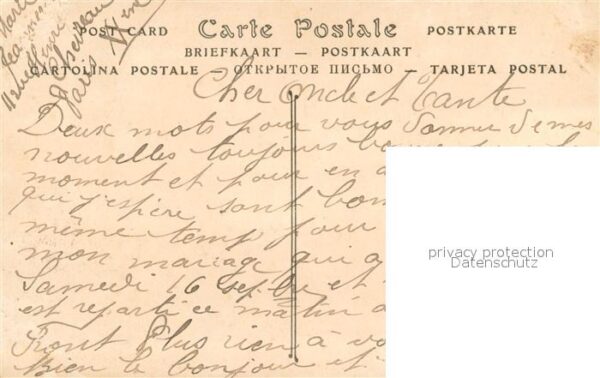 POST CARD Carte Postale POSTKARTE
BRIEFKAART — POSTKAART
CARTOLINA POSTALE — ОТКРЫТОЕ ПИСЬМО — TARJETA POSTAL
Paris
Cher Oncle et Tante
Deux mots pour vous donner de mes
nouvelles toujours
moment et pour en
qui j'espère sont bon
même temp pour
mon mariage qui a
Samedi 16 sepbre et
est reparti ce matin a
Front Plus rien à vo
bien le bonjour et
privacy protection
Datenschutz